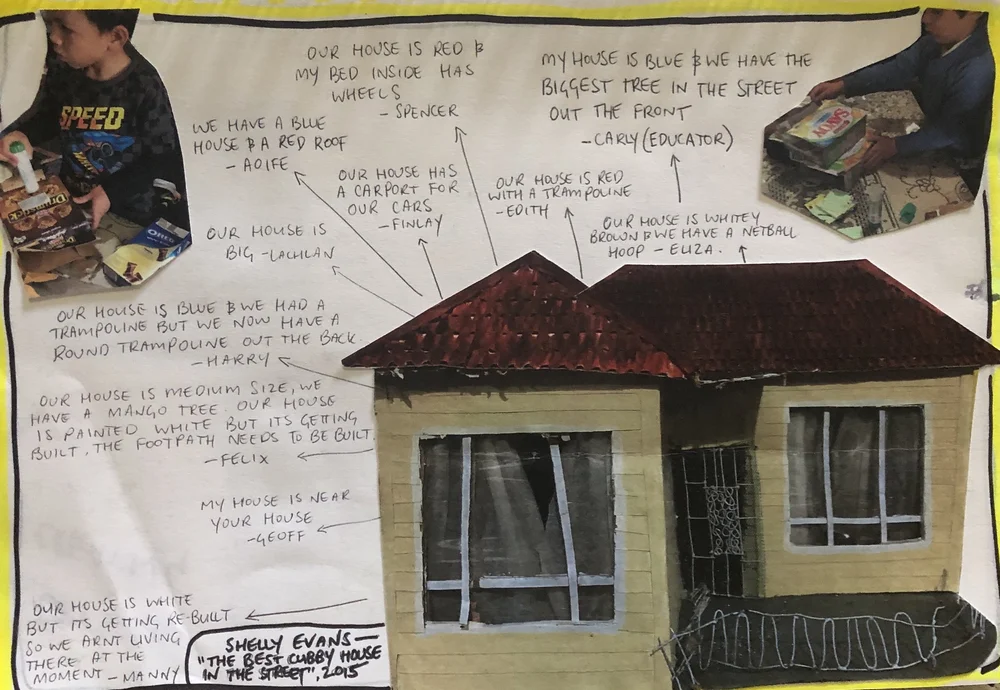 OUR HOUSE IS RED &
MY BED INSIDE HAS
WHEELS
- SPENCER
MY HOUSE IS BLUE & WE HAVE THE
BIGGEST TREE IN THE STREET
OUT THE FRONT
- CARLY (EDUCATOR)
WE HAVE A BLUE
HOUSE & A RED ROOF
- AOIFE
OUR HOUSE HAS
A CARPORT FOR
OUR CARS
- FINLAY
OUR HOUSE IS RED
WITH A TRAMPOLINE
- EDITH
OUR HOUSE IS WHITEY
BROWN & WE HAVE A NETBALL
HOOP - ELIZA.
OUR HOUSE IS
BIG - LACHLAN
OUR HOUSE IS BLUE & WE HAD A
TRAMPOLINE BUT WE NOW HAVE A
ROUND TRAMPOLINE OUT THE BACK.
- HARRY
OUR HOUSE IS MEDIUM SIZE, WE
HAVE A MANGO TREE. OUR HOUSE
IS PAINTED WHITE BUT ITS GETTING
BUILT, THE FOOTPATH NEEDS TO BE BUILT.
- FELIX
MY HOUSE IS NEAR
YOUR HOUSE
- GEOFF
OUR HOUSE IS WHITE
BUT ITS GETTING RE-BUILT
SO WE ARNT LIVING
THERE AT THE
MOMENT - MANNY
SHELLY EVANS -
"THE BEST CUBBY HOUSE
IN THE STREET", 2015
SPEED
OREO
SAVOY